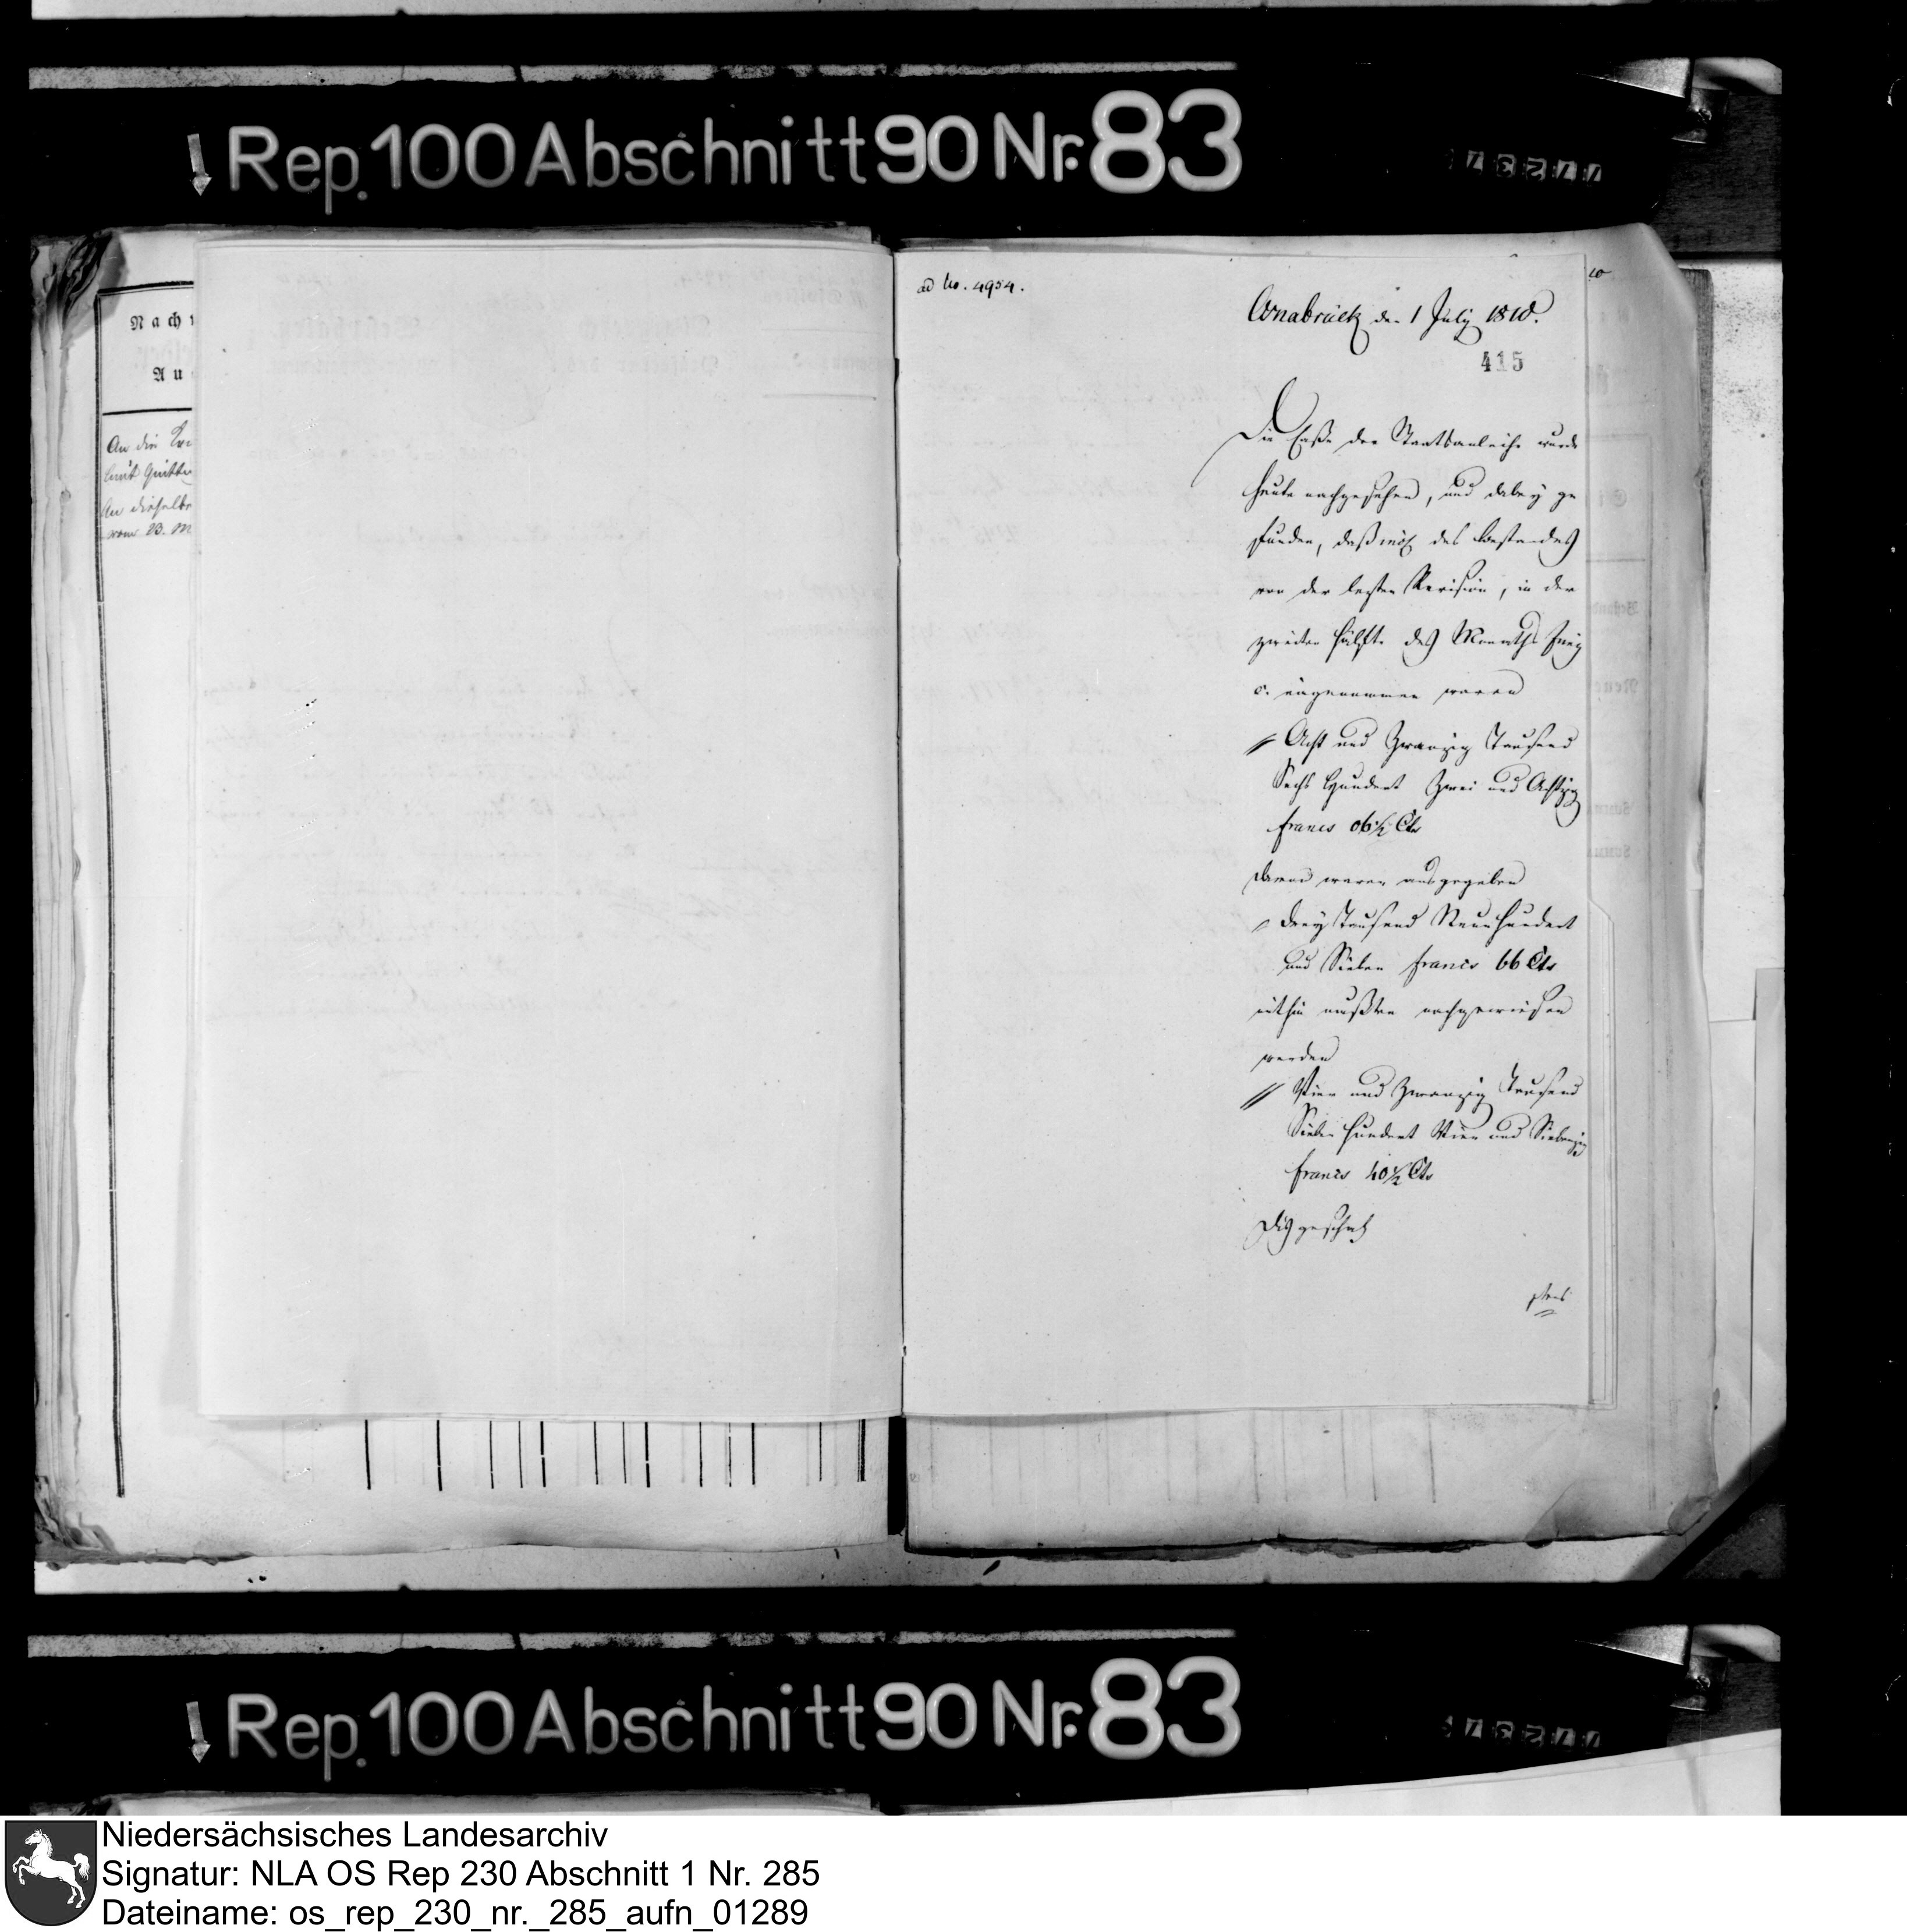 Rep. 100 Abschnitt 90 Nr. 83
Nach
Au
An die
laut Quittu
An dieselbe
vom 23. M
ad No. 4954.
Osnabrück den 1 July 1810.
415
Die Casse der Staatsanleihe wurde
heute nachgesehen, und dabey ge
funden, daß incl. des Bestandes
von der lezten Revision, in der
zweiten Hälfte des Monaths Juny
c. eingenommen waren
// Acht und Zwanzig Tausend
Sechs Hundert Zwei und Achtzig
francs 06½ Cts
davon waren ausgegeben
// Drey Tausend Neun Hundert
und Sieben francs 66 Cts
mithin mußten nachgewiesen
werden
// Vier und Zwanzig Tausend
Sieben Hundert Vier und Siebenzig
francs 40½ Cts
Dis geschah
Rep. 100 Abschnitt 90 Nr. 83
Niedersächsisches Landesarchiv
Signatur: NLA OS Rep 230 Abschnitt 1 Nr. 285
Dateiname: os_rep_230_nr._285_aufn_01289